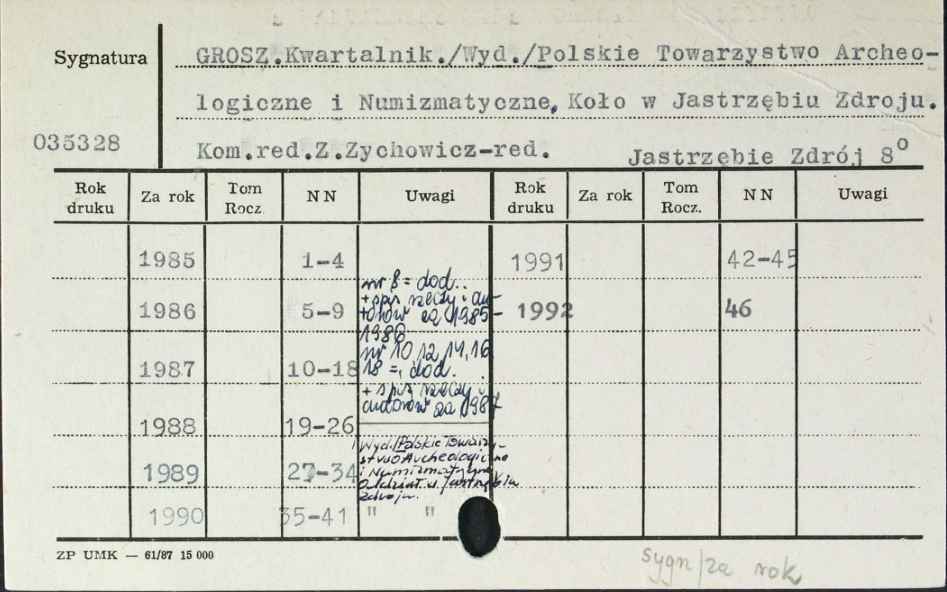 Sygnatura
GROSZ.Kwartalnik./Wyd./Polskie Towarzystwo Archeo-
logiczne i Numizmatyczne, Koło w Jastrzębiu Zdroju.
035328
Kom.red.Z.Zychowicz-red. Jastrzębie Zdrój 8º
Rok druku Za rok Tom Rocz. NN Uwagi Rok druku Za rok Tom Rocz. NN Uwagi
1985 1-4 1991 42-45
nr 8 = dod..
+ spis rzeczy i au-
1986 5-9 torów za 1985- 1992 46
1986
nr 10, 12, 14, 16
1987 10-18 18 = dod.
+ spis rzeczy i
autorów za 1987
1988 19-26
Wyd./Polskie Towarzy-
stwo Archeologiczne
1989 27-34 i Numizmatyczne
Oddział w Jastrzębiu
Zdroju.
1990 35-41 " "
ZP UMK — 61/87 15 000
sygn/za rok